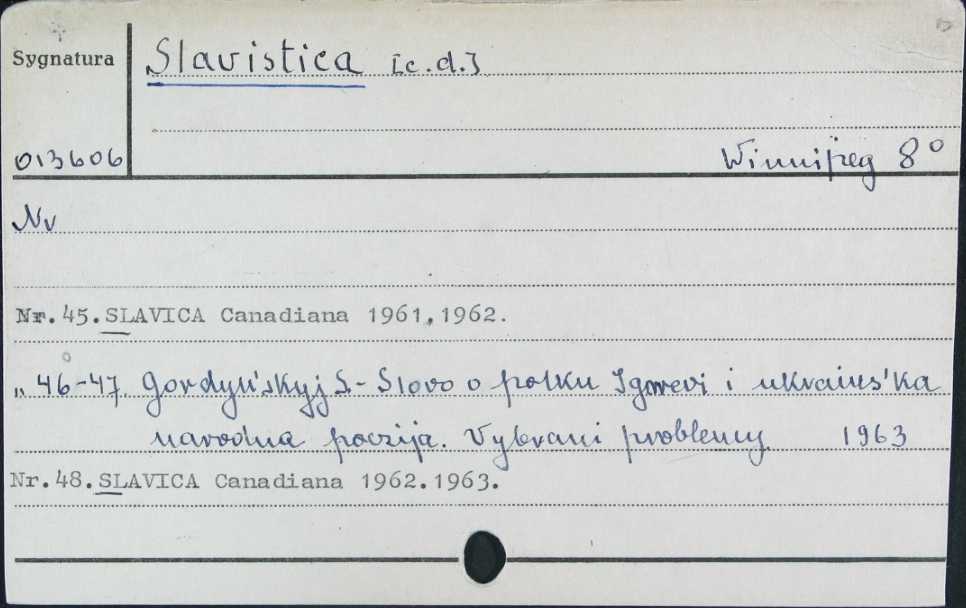 Sygnatura
Slavistica [c.d.]
013606
Winnipeg 8°
Nr
Nr.45.SLAVICA Canadiana 1961,1962.
„ 46-47 Gordyns'kyj S.- Slovo o polku Igorevi i ukrains'ka
narodna poezija. Vybrani problemy. 1963
Nr.48.SLAVICA Canadiana 1962.1963.